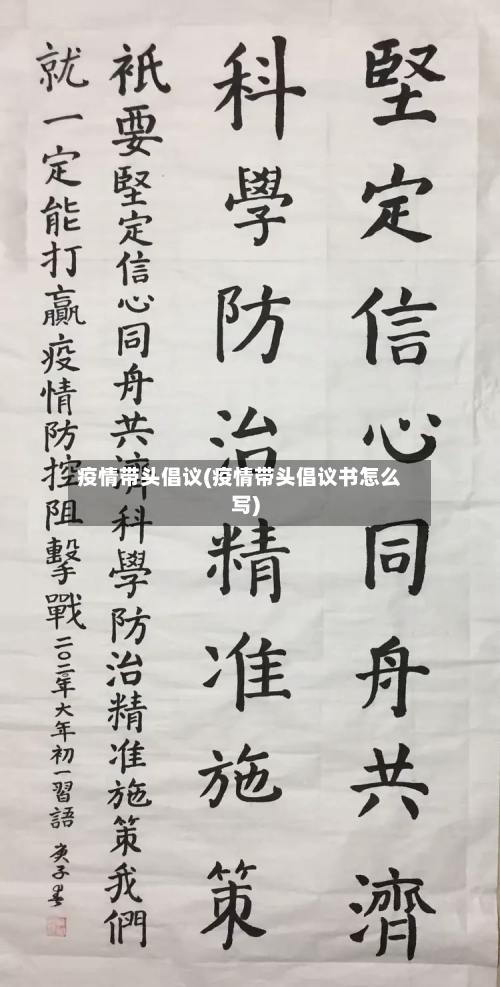 堅定信心同舟共濟
科學防治精准施策
衹要堅定信心同舟共濟科學防治精准施策我們
就一定能打贏疫情防控阻擊戰 二〇二〇年大年初一習語 庚子
疫情带头倡议(疫情带头倡议书怎么
写)